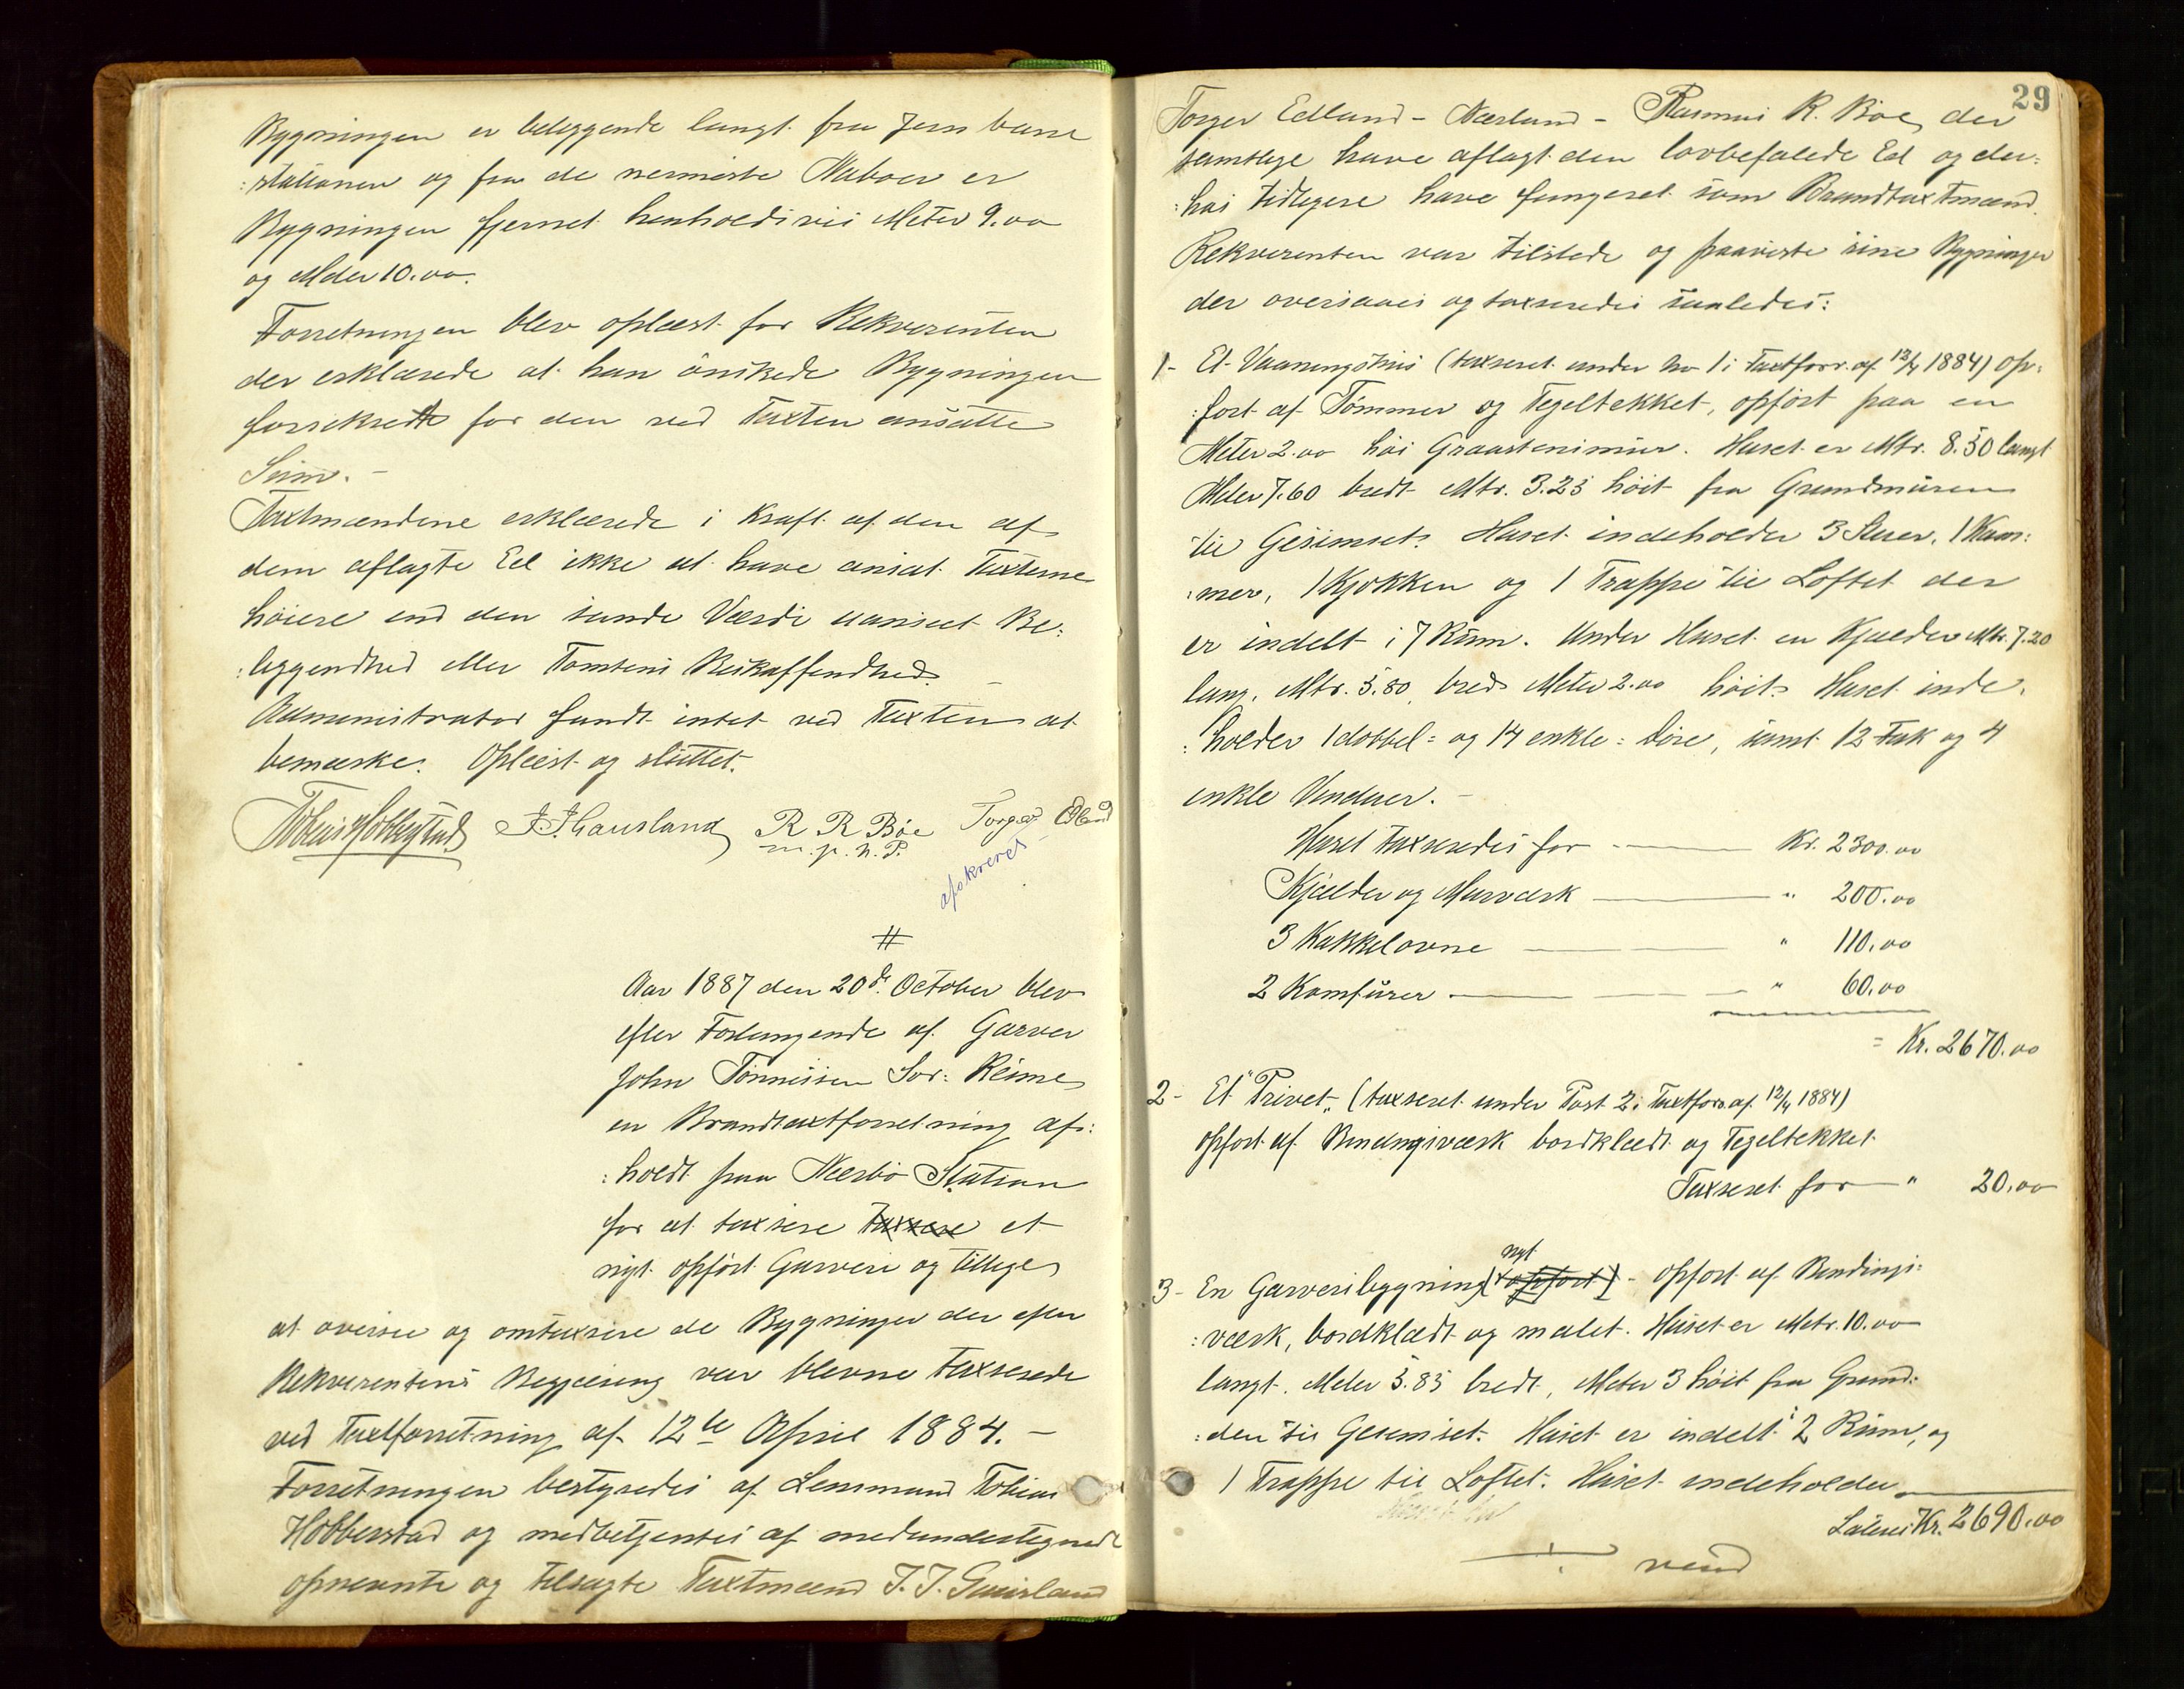 Bygningen er beliggende langt fra Jernbane
:stationen og fra de nermeste Naboer er
Bygningen fjernet henholdsvis Meter 9.00
og Meter 10.00.
Forretningen blev oplæst for Rekvirenten
der erklærede at han önskede Bygningen
forsikrett for den ved Taxten ansatte
Sum. -
Taxtmændene erklærede i Kraft af den af
dem aflagte Eed ikke at have ansat Taxterne
höiere end den sande Værdi uanseet Be:
:liggendhed eller Tomtens Beskaffendhed. -
Administrator fandt intet ved Taxten at
bemærke. Oplæst og sluttet.
Tobias Hobberstad J. J. Gausland R R Böe Torger Edland
m. p. n. P.
afskrevet -
#
Aar 1887 den 20de October blev
efter Forlangende af Garver
John Tönnesen Sör: Reime
en Brandtaxtforretning af:
:holdt paa Nærbö Station
for at taxsere taxsere et
nyt opfört Garveri og tillige
at oversee og omtaxsere de Bygninger der efter
Rekvirentens Begjæring var blevne taxserede
ved Taxtforretning af 12te April 1884. -
Forretningen bestyredes af Lensmand Tobias
Hobberstad og medbetjentes af medundertegnede
opnevnte og tilsagte Taxtmænd J. J. Gausland
29
Torger Edland - Nærland - Rasmus R. Böe, der
samtlige have aflagt den lovbefalede Ed og der:
:hos tidligere have fungeret som Brandtaxtmænd.
Rekvirenten var tilstede og paaviste sine Bygninger
der oversaaes og taxseredes saaledes:
1- Et Vaaningshus (taxseret under No 1 i Taxtforr. af 12/4 1884) op:
:fört af Tömmer og Tegeltekket, opfört paa en
Meter 2.00 höi Graastensmur. Huset er Mtr. 8.50 langt
Meter 7.60 bredt Mtr. 3.25 höit fra Grundmuren
til Gesimset. Huset indeholder 3 Stuer, 1 Kam:
:mer, 1 Kjökken og 1 Trappe til Loftet der
er indelt i 7 Rum. Under Huset en Kjælder Mtr. 7.20
lang, Mtr. 5.80 bred Meter 2.00 höit. Huset inde:
:holder 1 dobbel= og 14 enkle= Döre, samt 12 Fak og 4
enkle Venduer. -
Huset taxseredes for - Kr. 2300.00
Kjælder og Murværk - " 200.00
3 Kakkelovne - " 110.00
2 Komfürer - " 60.00
= Kr. 2670.00
2- Et "Privet" (taxseret under Post 2 i Taxtforr. af 12/4 1884)
opfört af Bindingsværk bordklædt og Tegeltekket
Taxseret for - " 20.00
nyt
3- En Garveribygning (opfört) - opfört af Bindings:
:værk, bordklædt og malet. Huset er Metr. 10.00
langt. Meter 5.85 bredt, Meter 3 höit fra Grund:
:den til Gesemset. Huset er indelt i 2 Rum, og
1 Trappe til Loftet. Huset indeholder
Lateris Kr. 2690.00
vend